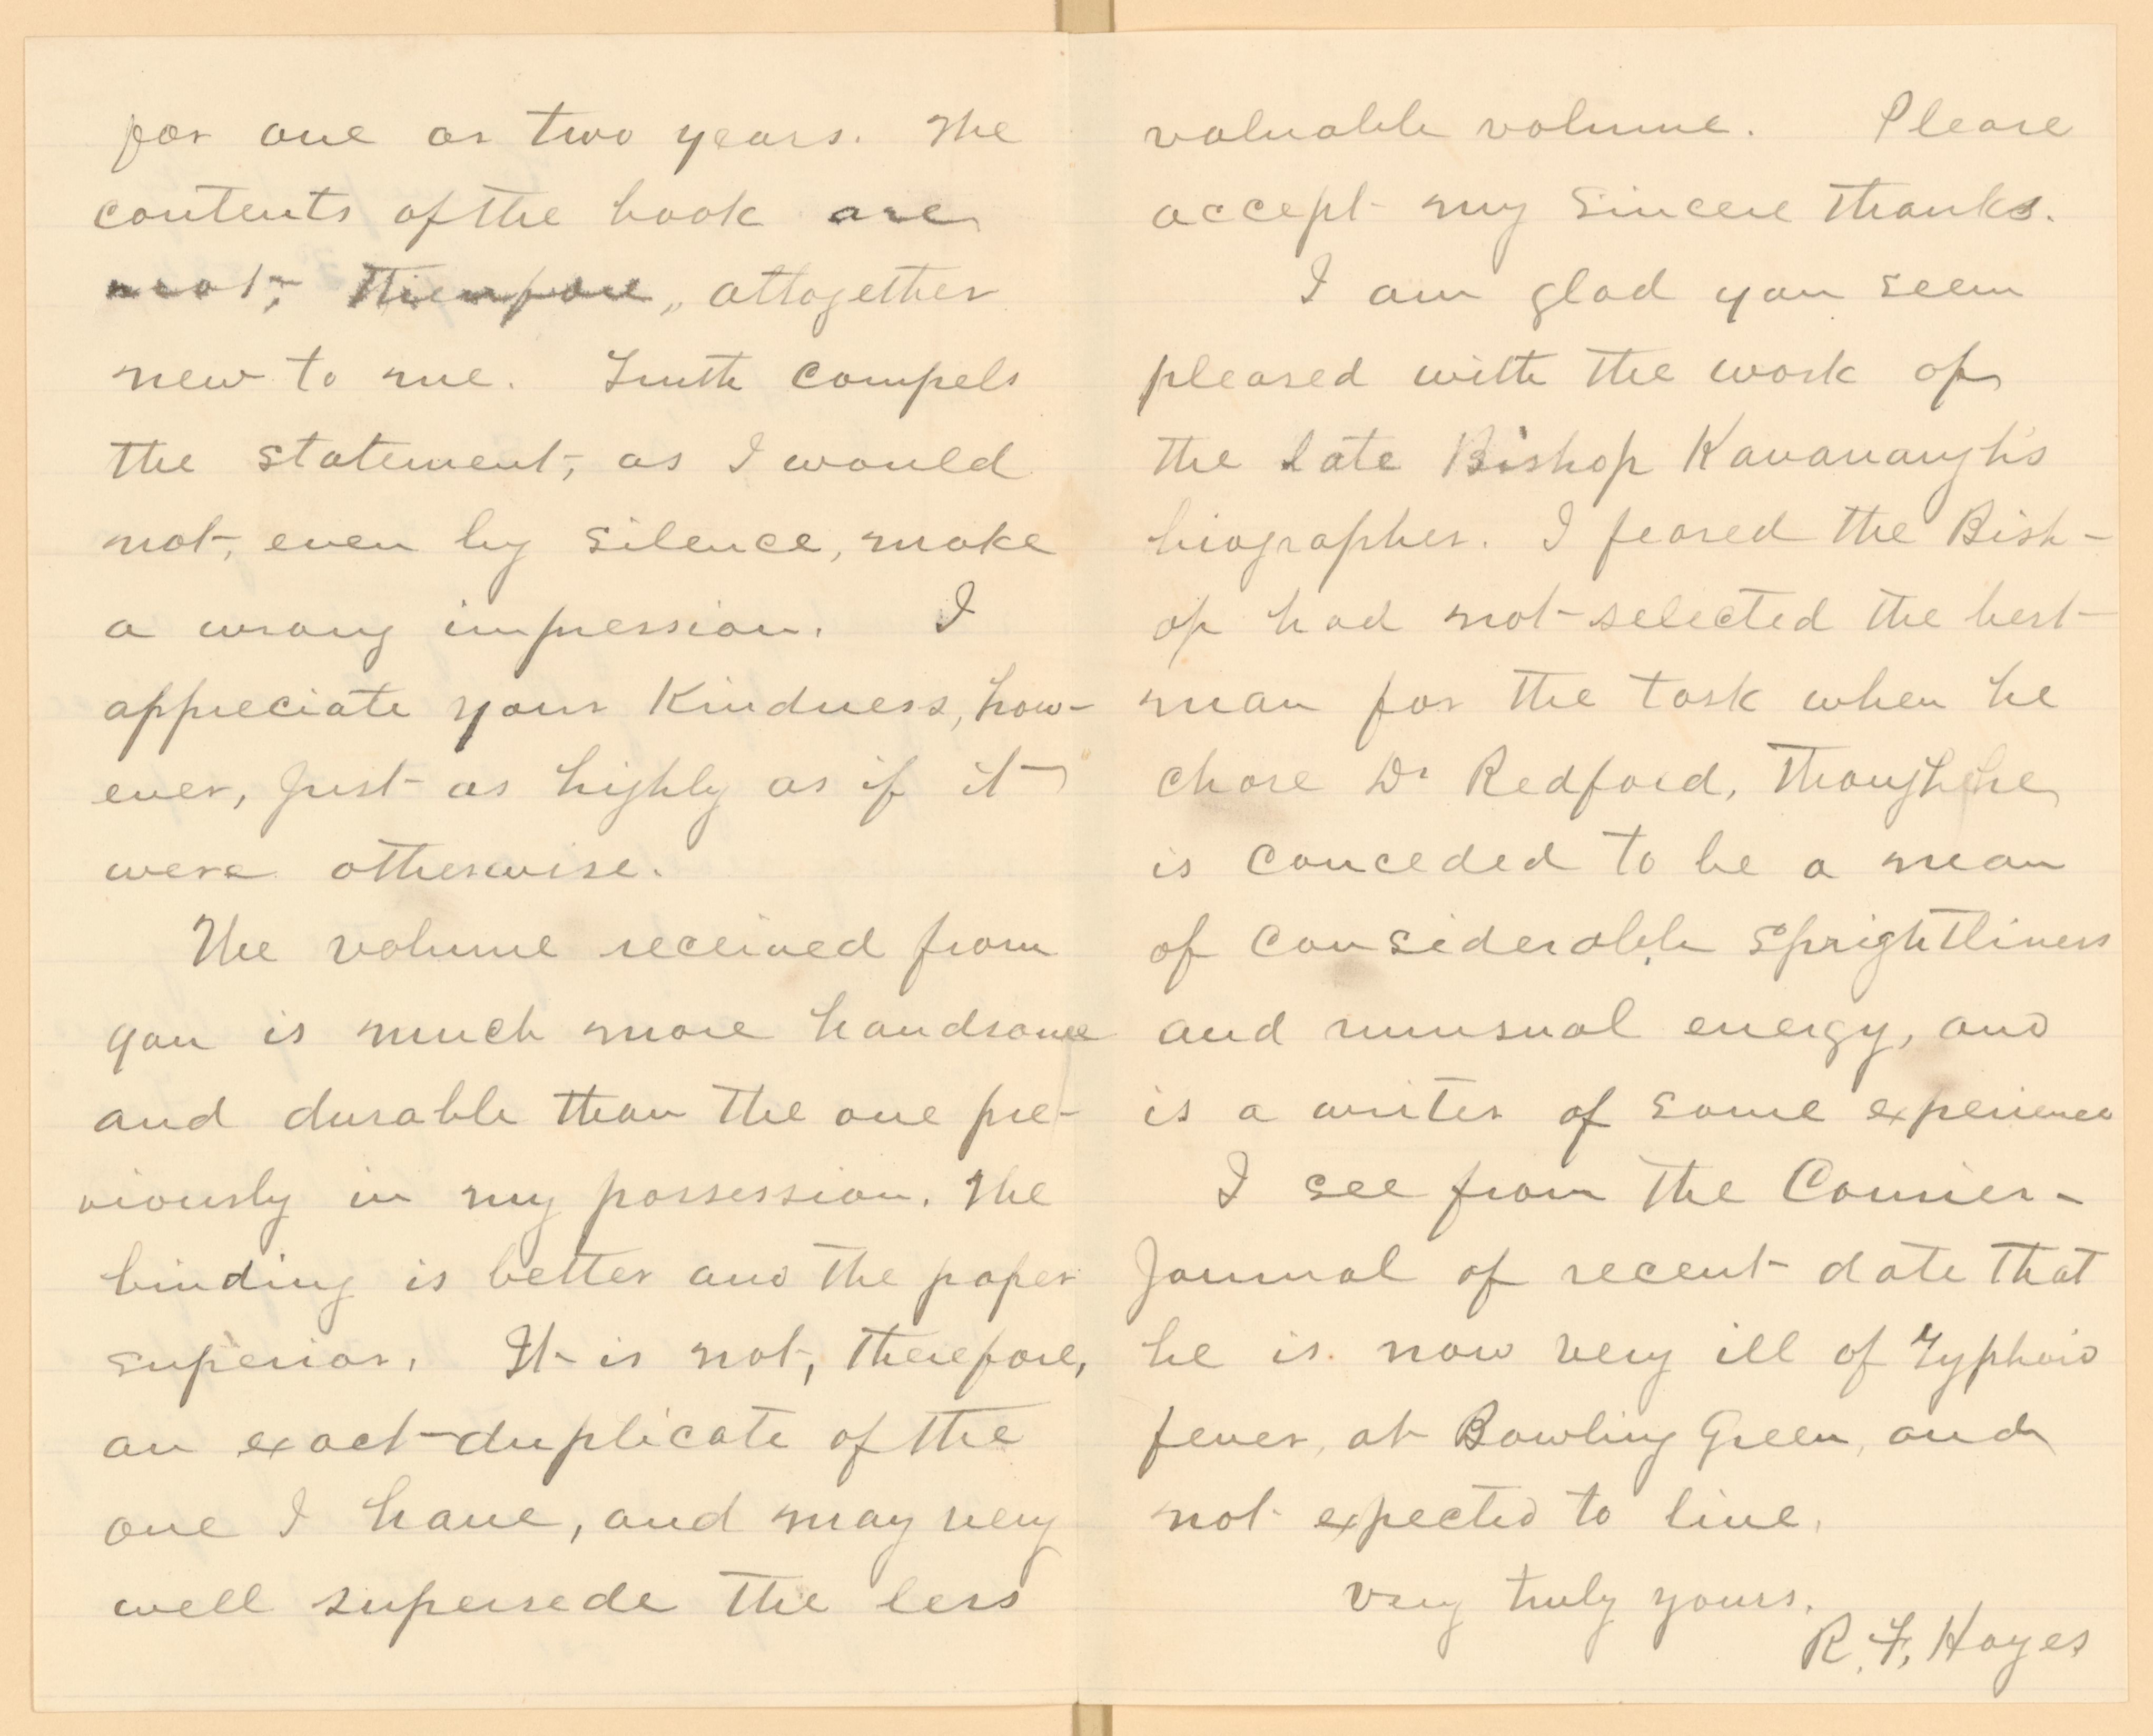 for one or two years. The
contents of the book are
not, therefore, altogether
new to me. Truth compels
the statement, as I would
not, even by silence, make
a wrong impression. I
appreciate your kindness, how-
ever, just as highly as if it
were otherwise.
The volume received from
you is much more handsome
and durable than the one pre-
viously in my possession. The
binding is better and the paper
superior. It is not, therefore,
an exact duplicate of the
one I have, and may very
well supersede the less
valuable volume. Please
accept my sincere thanks.
I am glad you seem
pleased with the work of
the late Bishop Kavanaugh's
biographer. I feared the Bish-
op had not selected the best
man for the task when he
chose Dr Redford, though he
is conceded to be a man
of considerable sprightliness
and unusual energy, and
is a writer of some experience
I see from the Courier-
Journal of recent date that
he is now very ill of Typhoid
fever, at Bowling Green, and
not expected to live.
Very truly yours,
R. F. Hayes